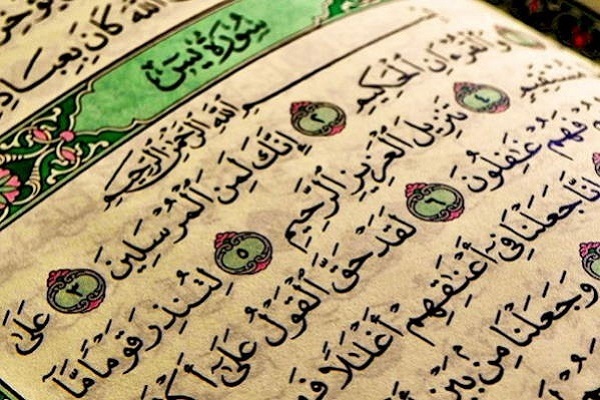 ٱللَّهَ كَانَ بِعِبَادِ
سُورَةُ يسٓ
بِسْمِ ٱللَّهِ ٱلرَّحْمَٰنِ ٱلرَّحِيمِ
وَٱلْقُرْءَانِ ٱلْحَكِيمِ ٢ إِنَّكَ لَمِنَ ٱلْمُرْسَلِينَ ٣ عَلَىٰ
مُّسْتَقِيمٍ ٤ تَنزِيلَ ٱلْعَزِيزِ ٱلرَّحِيمِ ٥ لِتُنذِرَ قَوْمًا مَّا
فَهُمْ غَٰفِلُونَ ٦ لَقَدْ حَقَّ ٱلْقَوْلُ عَلَىٰٓ
إِنَّا جَعَلْنَا فِىٓ أَعْنَٰقِهِمْ أَغْلَٰلًا
وَجَعَلْنَا مِنۢ بَيْنِ